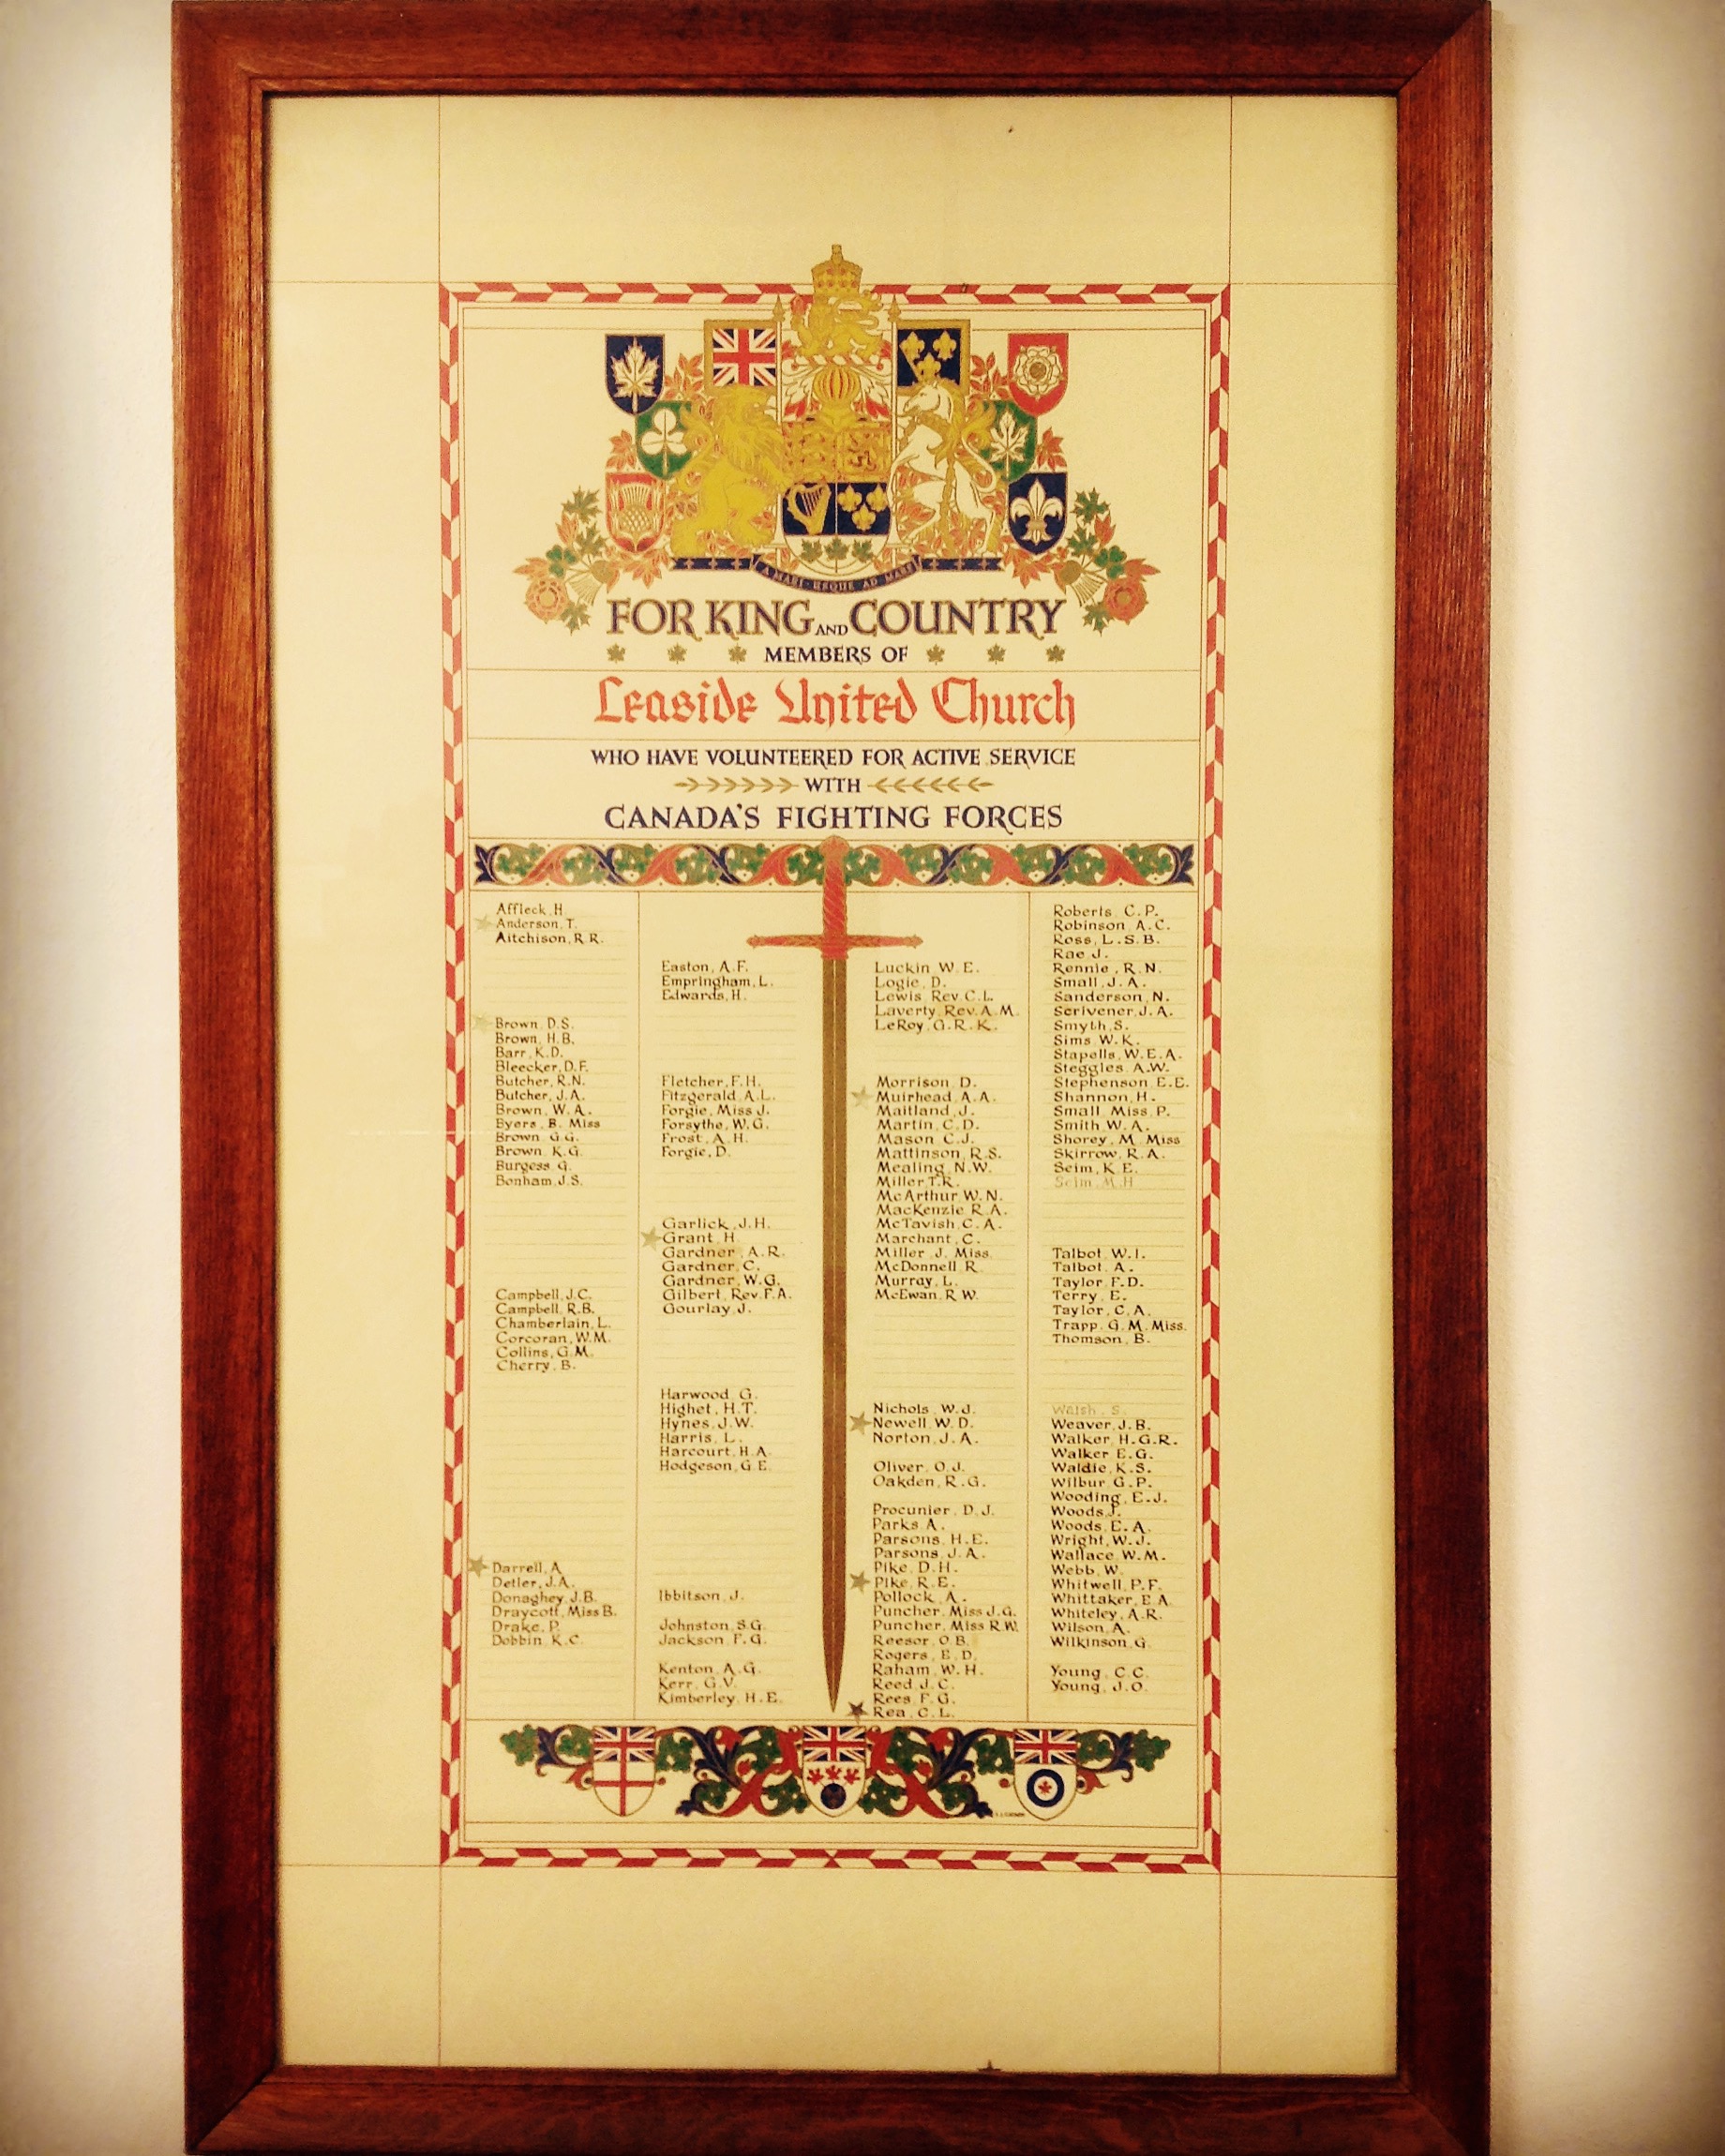 A MARI USQUE AD MARE
FOR KING AND COUNTRY
MEMBERS OF
Leaside United Church
WHO HAVE VOLUNTEERED FOR ACTIVE SERVICE
WITH
CANADA'S FIGHTING FORCES
Affleck, H.
Anderson, T.
Aitchison, R.R.
Brown, D.S.
Brown, H.B.
Barr, K.D.
Bleecker, D.F.
Butcher, R.N.
Butcher, J.A.
Brown, W.A.
Byers, B. Miss
Brown, G.G.
Brown, K.G.
Burgess, G.
Bonham, J.S.
Campbell, J.C.
Campbell, R.B.
Chamberlain, L.
Corcoran, W.M.
Collins, G.M.
Cherry, B.
Darrell, A.
Detler, J.A.
Donaghey, J.B.
Draycott, Miss B.
Drake, P.
Dobbin, K.C.
Easton, A.F.
Empringham, L.
Edwards, H.
Fletcher, F.H.
Fitzgerald, A.L.
Forgie, Miss J.
Forsythe, W.G.
Frost, A.H.
Forgie, D.
Garlick, J.H.
Grant, H.
Gardner, A.R.
Gardner, C.
Gardner, W.G.
Gilbert, Rev. F.A.
Gourlay, J.
Harwood, G.
Highet, H.T.
Hynes, J.W.
Harris, L.
Harcourt, H.A.
Hodgeson, G.E.
Ibbitson, J.
Johnston, S.G.
Jackson, F.G.
Kenton, A.G.
Kerr, G.V.
Kimberley, H.E.
Luckin, W.E.
Logie, D.
Lewis, Rev. C.L.
Laverty, Rev. A.M.
LeRoy, G.R.K.
Morrison, D.
Muirhead, A.A.
Maitland, J.
Martin, C.D.
Mason, C.J.
Mattinson, R.S.
Mealing, N.W.
Miller, T.R.
McArthur, W.N.
MacKenzie, R.A.
McTavish, C.A.
Marchant, C.
Miller, J. Miss
McDonnell, R.
Murray, L.
McEwan, R.W.
Nichols, W.J.
Newell, W.D.
Norton, J.A.
Oliver, O.J.
Oakden, R.G.
Procunier, D.J.
Parks, A.
Parsons, H.E.
Parsons, J.A.
Pike, D.H.
Pike, R.E.
Pollock, A.
Puncher, Miss J.G.
Puncher, Miss R.W.
Reesor, O.B.
Rogers, E.D.
Raham, W.H.
Reed, J.C.
Rees, F.G.
Rea, C.L.
Roberts, C.P.
Robinson, A.C.
Ross, L.S.B.
Rae, J.
Rennie, R.N.
Small, J.A.
Sanderson, N.
Scrivener, J.A.
Smyth, S.
Sims, W.K.
Stapells, W.E.A.
Steggles, A.W.
Stephenson, E.E.
Shannon, H.
Small, Miss, P.
Smith, W.A.
Shorey, M. Miss
Skirrow, R.A.
Seim, K.E.
Seim, M.H.
Talbot, W.I.
Talbot, A.
Taylor, F.D.
Terry, E.
Taylor, C.A.
Trapp, G.M. Miss.
Thomson, B.
Walsh, S.
Weaver, J.B.
Walker, H.G.R.
Walker, E.G.
Waldie, K.S.
Wilbur, G.P.
Wooding, E.J.
Woods, J.
Woods, E.A.
Wright, W.J.
Wallace, W.M.
Webb, W.
Whitwell, P.F.
Whittaker, E.A.
Whiteley, A.R.
Wilson, A.
Wilkinson, G.
Young, C.C.
Young, J.O.